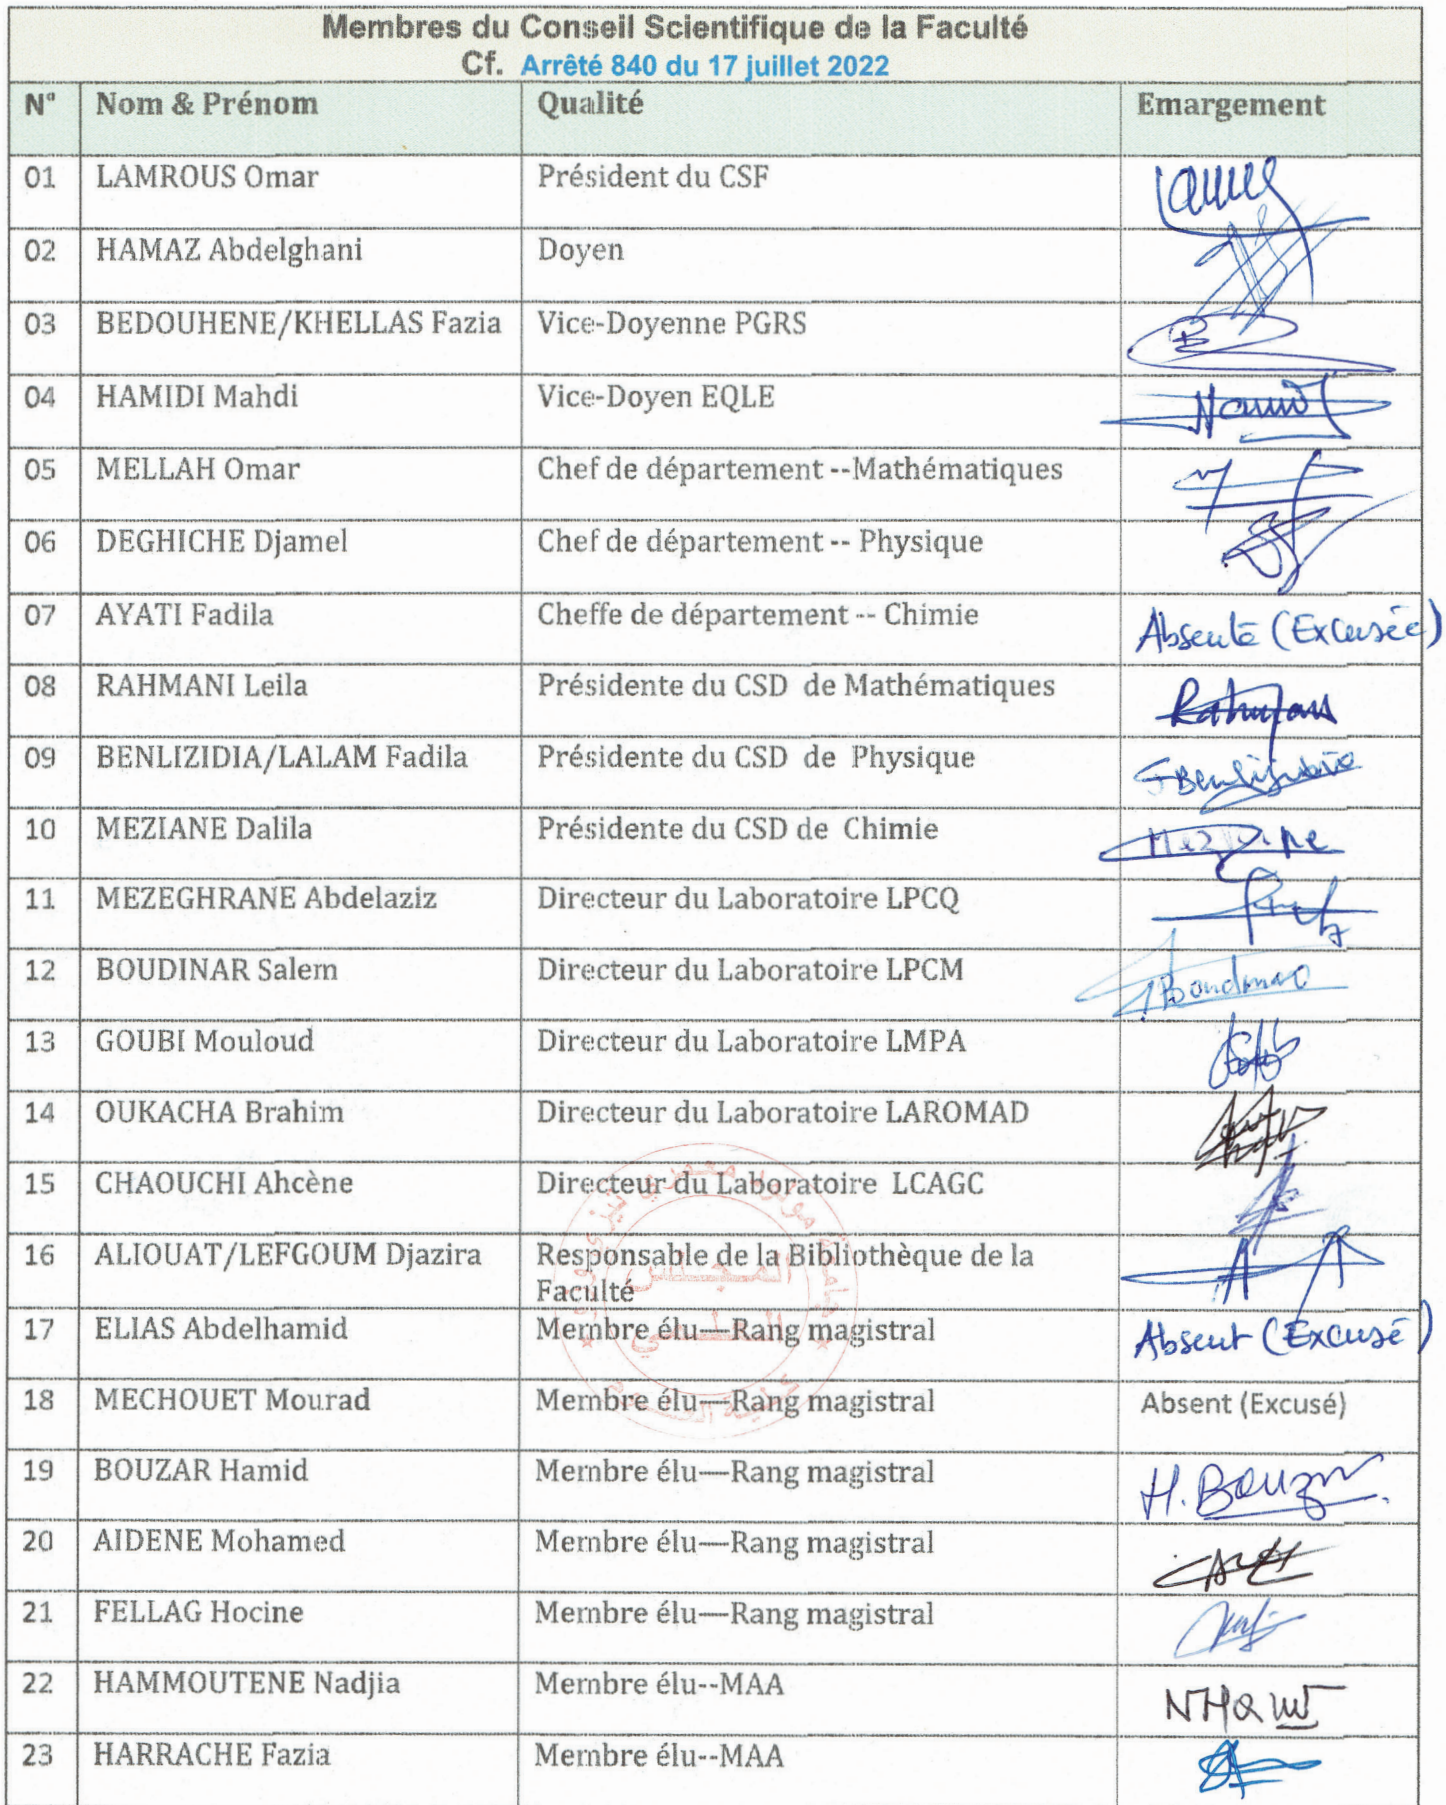 Membres du Conseil Scientifique de la Faculté
Cf. Arrêté 840 du 17 juillet 2022
N° Nom & Prénom Qualité Emargement
01 LAMROUS Omar Président du CSF
02 HAMAZ Abdelghani Doyen
03 BEDOUHENE/KHELLAS Fazia Vice-Doyenne PGRS
04 HAMIDI Mahdi Vice-Doyen EQLE
05 MELLAH Omar Chef de département --Mathématiques
06 DEGHICHE Djamel Chef de département -- Physique
07 AYATI Fadila Cheffe de département -- Chimie Absente (Excusée)
08 RAHMANI Leila Présidente du CSD de Mathématiques
09 BENLIZIDIA/LALAM Fadila Présidente du CSD de Physique
10 MEZIANE Dalila Présidente du CSD de Chimie
11 MEZEGHRANE Abdelaziz Directeur du Laboratoire LPCQ
12 BOUDINAR Salem Directeur du Laboratoire LPCM
13 GOUBI Mouloud Directeur du Laboratoire LMPA
14 OUKACHA Brahim Directeur du Laboratoire LAROMAD
15 CHAOUCHI Ahcène Directeur du Laboratoire LCAGC
16 ALIOUAT/LEFGOUM Djazira Responsable de la Bibliothèque de la
Faculté
المجلس
العلمي
17 ELIAS Abdelhamid Membre élu—Rang magistral Absent (Excusé)
18 MECHOUET Mourad Membre élu—Rang magistral Absent (Excusé)
19 BOUZAR Hamid Membre élu—Rang magistral H. Bouzar
20 AIDENE Mohamed Membre élu—Rang magistral
21 FELLAG Hocine Membre élu—Rang magistral
22 HAMMOUTENE Nadjia Membre élu--MAA
23 HARRACHE Fazia Membre élu--MAA